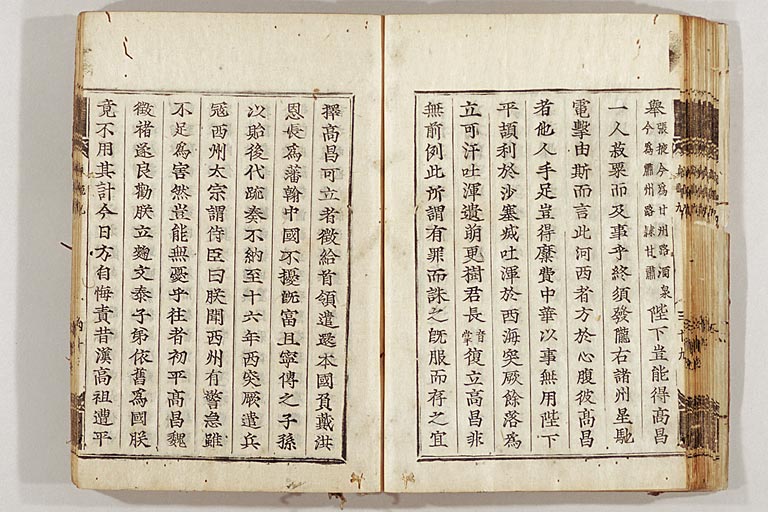 舉張掖今為甘州路酒泉今為肅州路隸甘肅陛下豈能得高昌
一人菽粟而及事乎終須發隴右諸州星馳
電擊由斯而言此河西者方於心腹彼高昌
者他人手足豈得糜費中華以事無用陛下
平頡利於沙塞滅吐渾於西海突厥餘落為
立可汗吐渾遺萌更樹君長音掌復立高昌非
無前例此所謂有罪而誅之既服而存之宜
擇高昌可立者徵給首領遣還本國負戴洪
恩長為藩翰中國不擾既富且寧傳之子孫
以貽後代疏奏不納至十六年西突厥遣兵
寇西州太宗謂侍臣曰朕聞西州有警急雖
不足為害然豈能無憂乎往者初平高昌魏
徵褚遂良勸朕立麴文泰子弟依舊為國朕
竟不用其計今日方自悔責昔漢高祖遭平